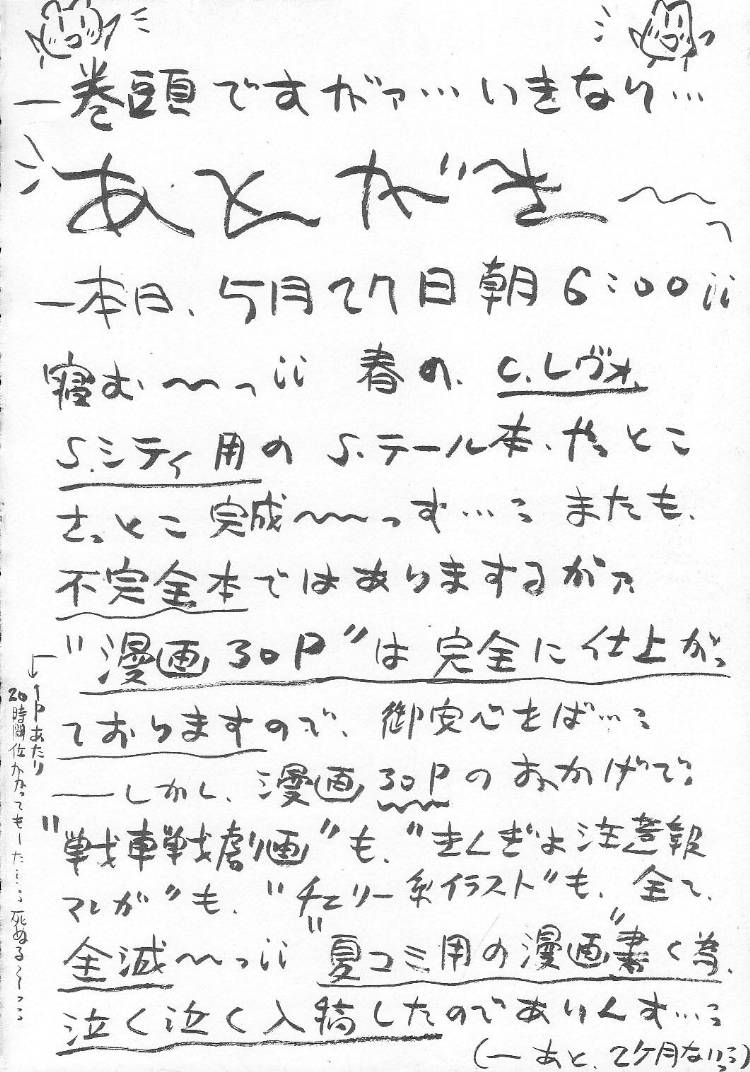 一巻頭ですがァ…いきなり…
あとがき〜〜っ
一本日、5月27日朝6:00¡¡
寝む〜〜っ¡¡ 春の、C.レヴォ、
S.シティ用のS.テール本、やっとこ
さっとこ完成〜〜っす…:: またも、
不完全本ではありまするがァ
"漫画30P"は完全に仕上がっ
ておりますので、御安心をば…::
←1Pあたり
20時間位かかってもーた…:: 死ぬる〜っ::
──しかし、漫画30Pのおかげで::
"戦車戦劇画"も、"きんぎょ注意報
マンガ"も、"チェリー系イラスト"も、全て、
全滅〜っ¡¡ "夏コミ用の漫画"書く為、
泣く泣く入稿したのでありんす…::
(一あと、2ヶ月ないっ::)